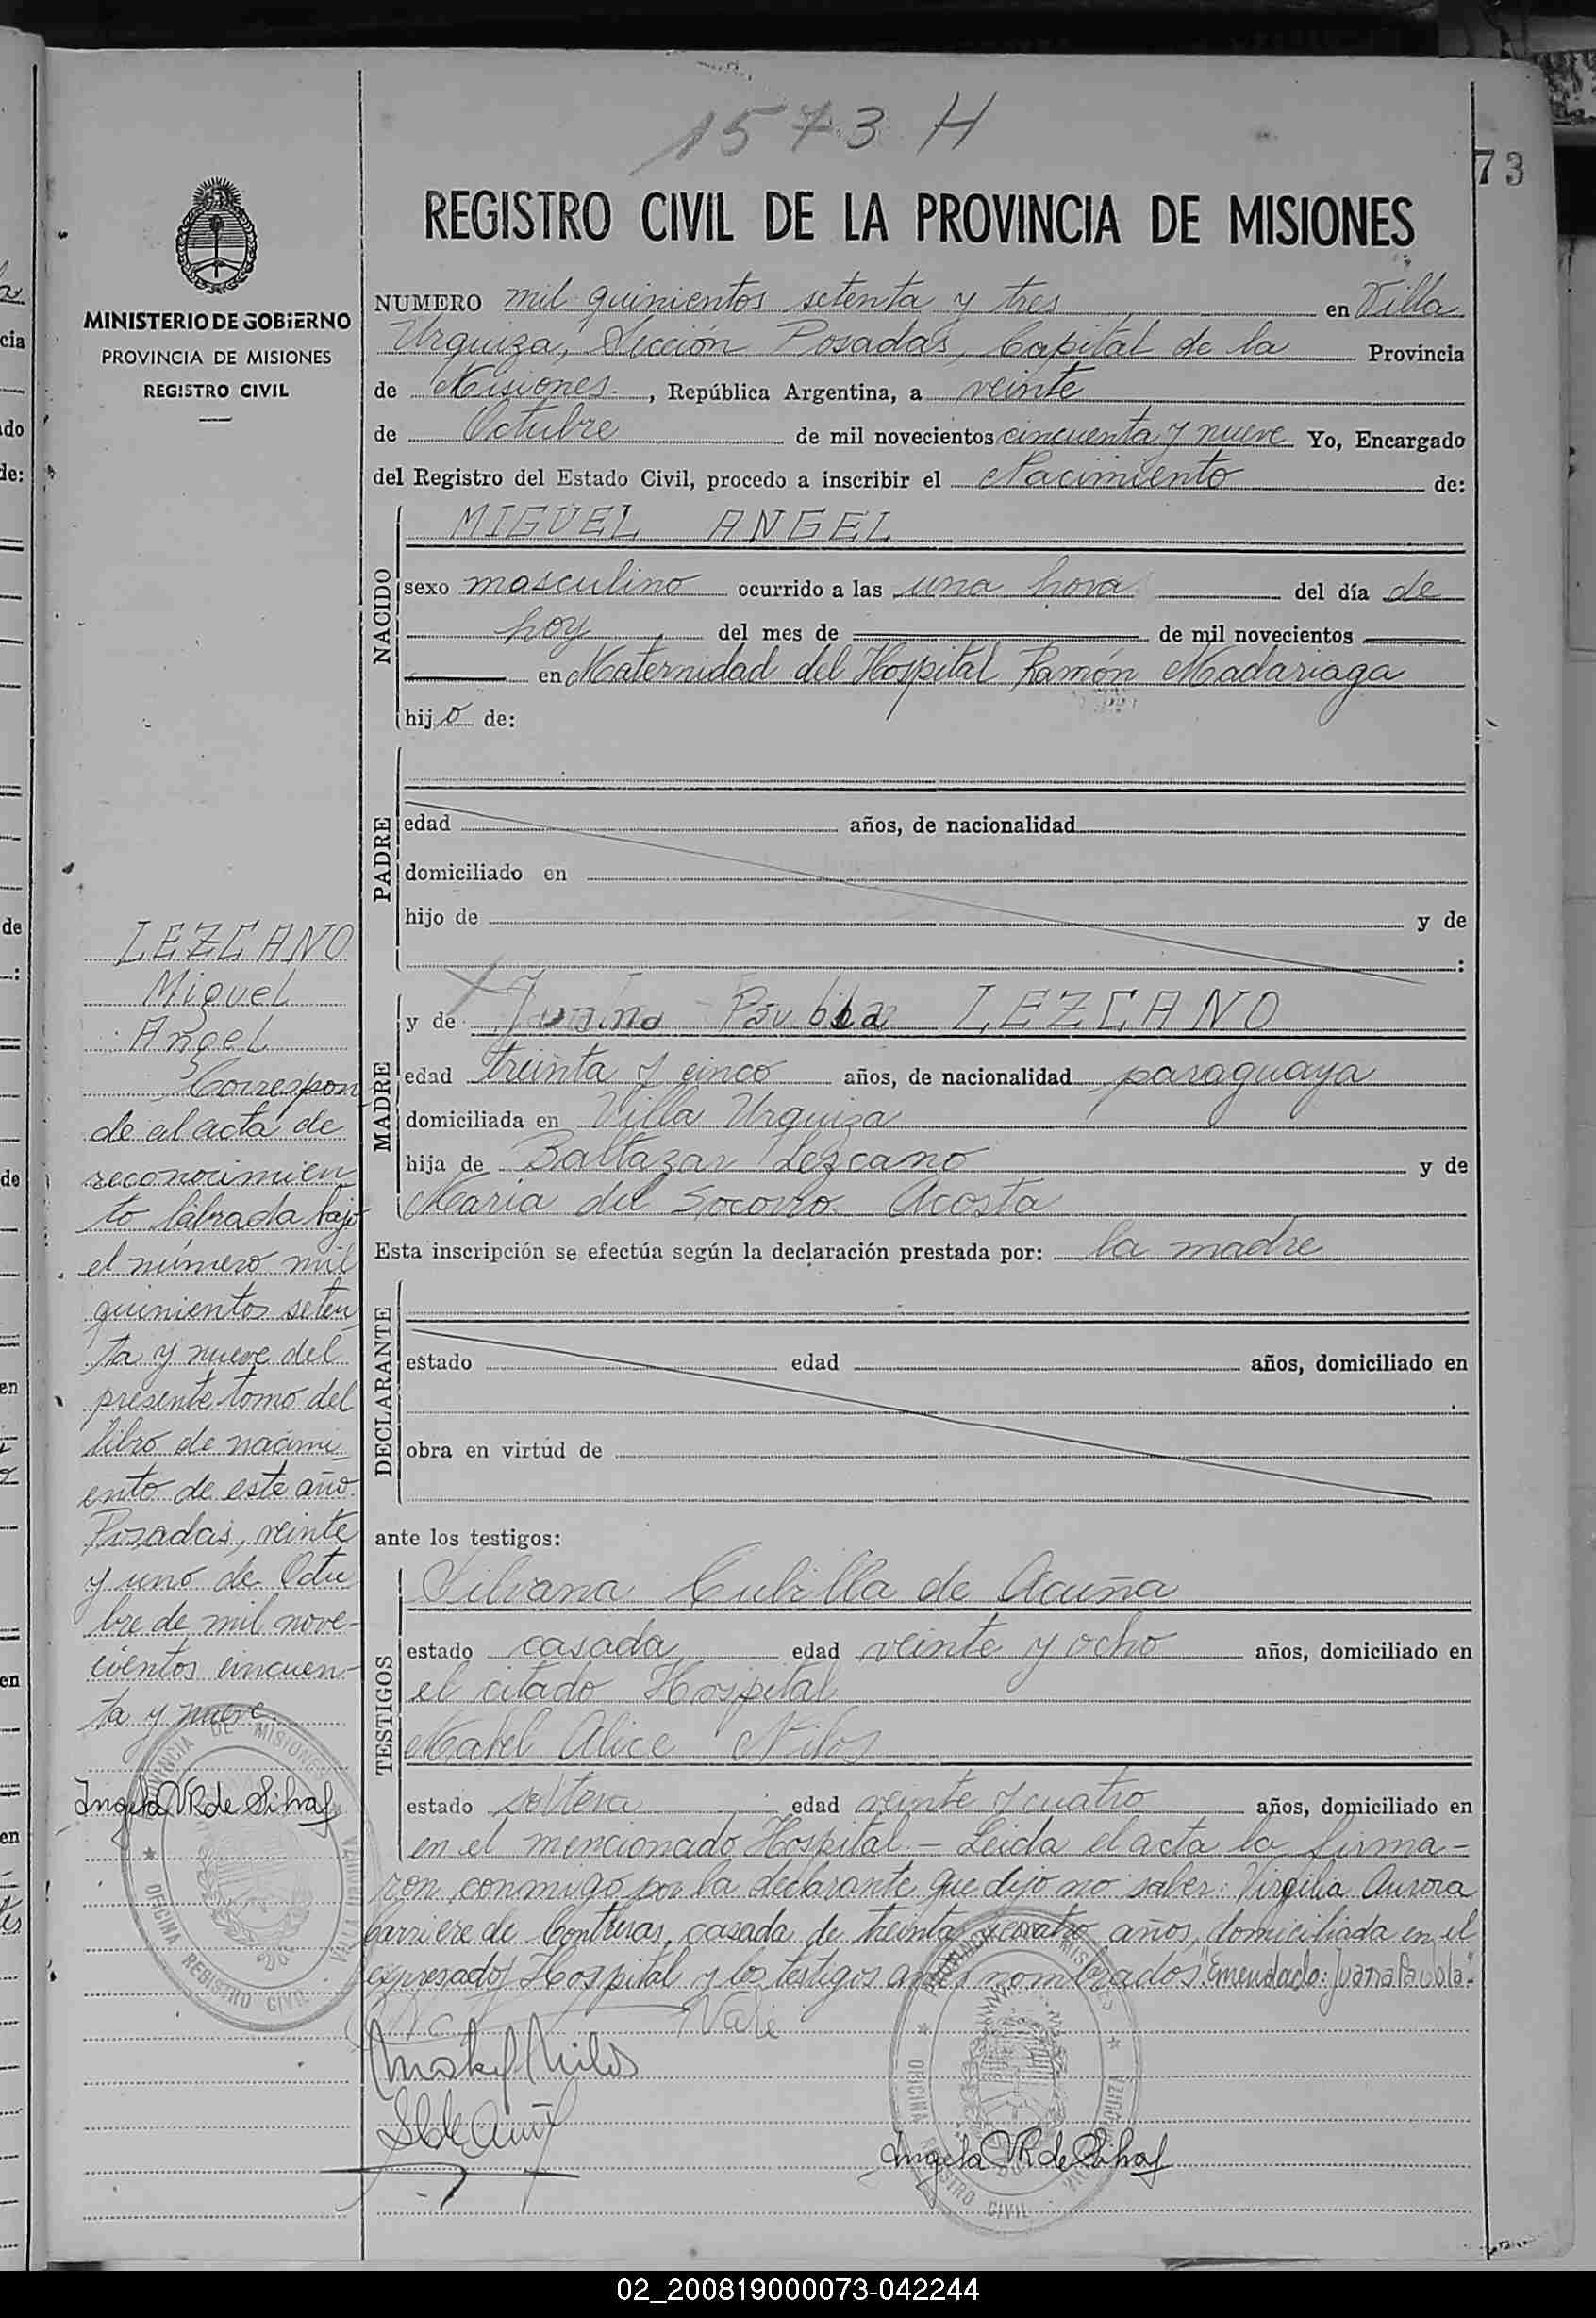 1573 H
73
REGISTRO CIVIL DE LA PROVINCIA DE MISIONES
MINISTERIO DE GOBIERNO
PROVINCIA DE MISIONES
REGISTRO CIVIL
NUMERO mil quinientos setenta y tres en Villa
Urquiza, Sección Posadas, Capital de la Provincia
de Misiones , República Argentina, a veinte
de Octubre de mil novecientos cincuenta y nueve Yo, Encargado
del Registro del Estado Civil, procedo a inscribir el Nacimiento de:
NACIDO
MIGUEL ANGEL
sexo masculino ocurrido a las una hora del día de
hoy del mes de de mil novecientos
en Maternidad del Hospital Ramón Madariaga
hijo de:
PADRE
edad años, de nacionalidad
domiciliado en
hijo de y de
:
MADRE
y de Juana Paubla LEZCANO
edad treinta y cinco años, de nacionalidad paraguaya
domiciliada en Villa Urquiza
hija de Baltazar Lezcano y de
Maria del Socorro Acosta
Esta inscripción se efectúa según la declaración prestada por: la madre
DECLARANTE
estado edad años, domiciliado en
obra en virtud de
ante los testigos:
TESTIGOS
Silvana Cubilla de Acuña
estado casada edad veinte y ocho años, domiciliado en
el citado Hospital
Mabel Alice Nilos
estado soltera edad veinte y cuatro años, domiciliado en
en el mencionado Hospital - Leida el acta la firma-
ron conmigo por la declarante que dijo no saber: Virgilia Aurora
Carriere de Contreras, casada de treinta y cuatro años, domiciliada en el
expresado Hospital y los testigos antes nombrados. Emendado: "Juana Paubla".
Vale
LEZCANO
Miguel
Angel
Correspon
de al acta de
reconocimien
to labrada bajo
el número mil
quinientos seten
ta y nueve del
presente tomo del
libro de nacimi
ento de este año.
Posadas, veinte
y uno de Octu
bre de mil nove-
cientos cincuen-
ta y nueve.
PROVINCIA DE MISIONES
OFICINA REGISTRO CIVIL
OFICINA REGISTRO CIVIL
02_200819000073-042244